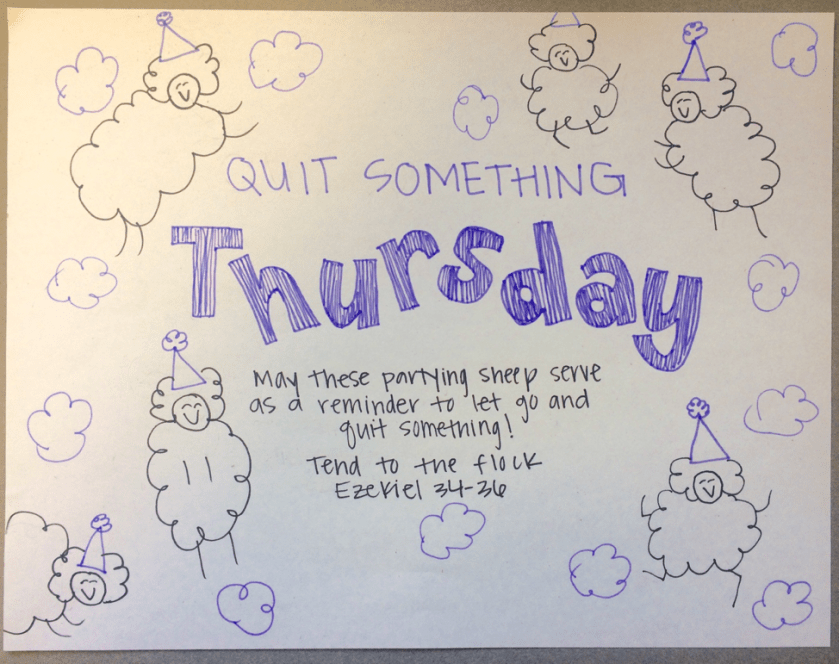 QUIT SOMETHING
Thursday
May these partying sheep serve
as a reminder to let go and
quit something!
Tend to the flock
Ezekiel 34-36